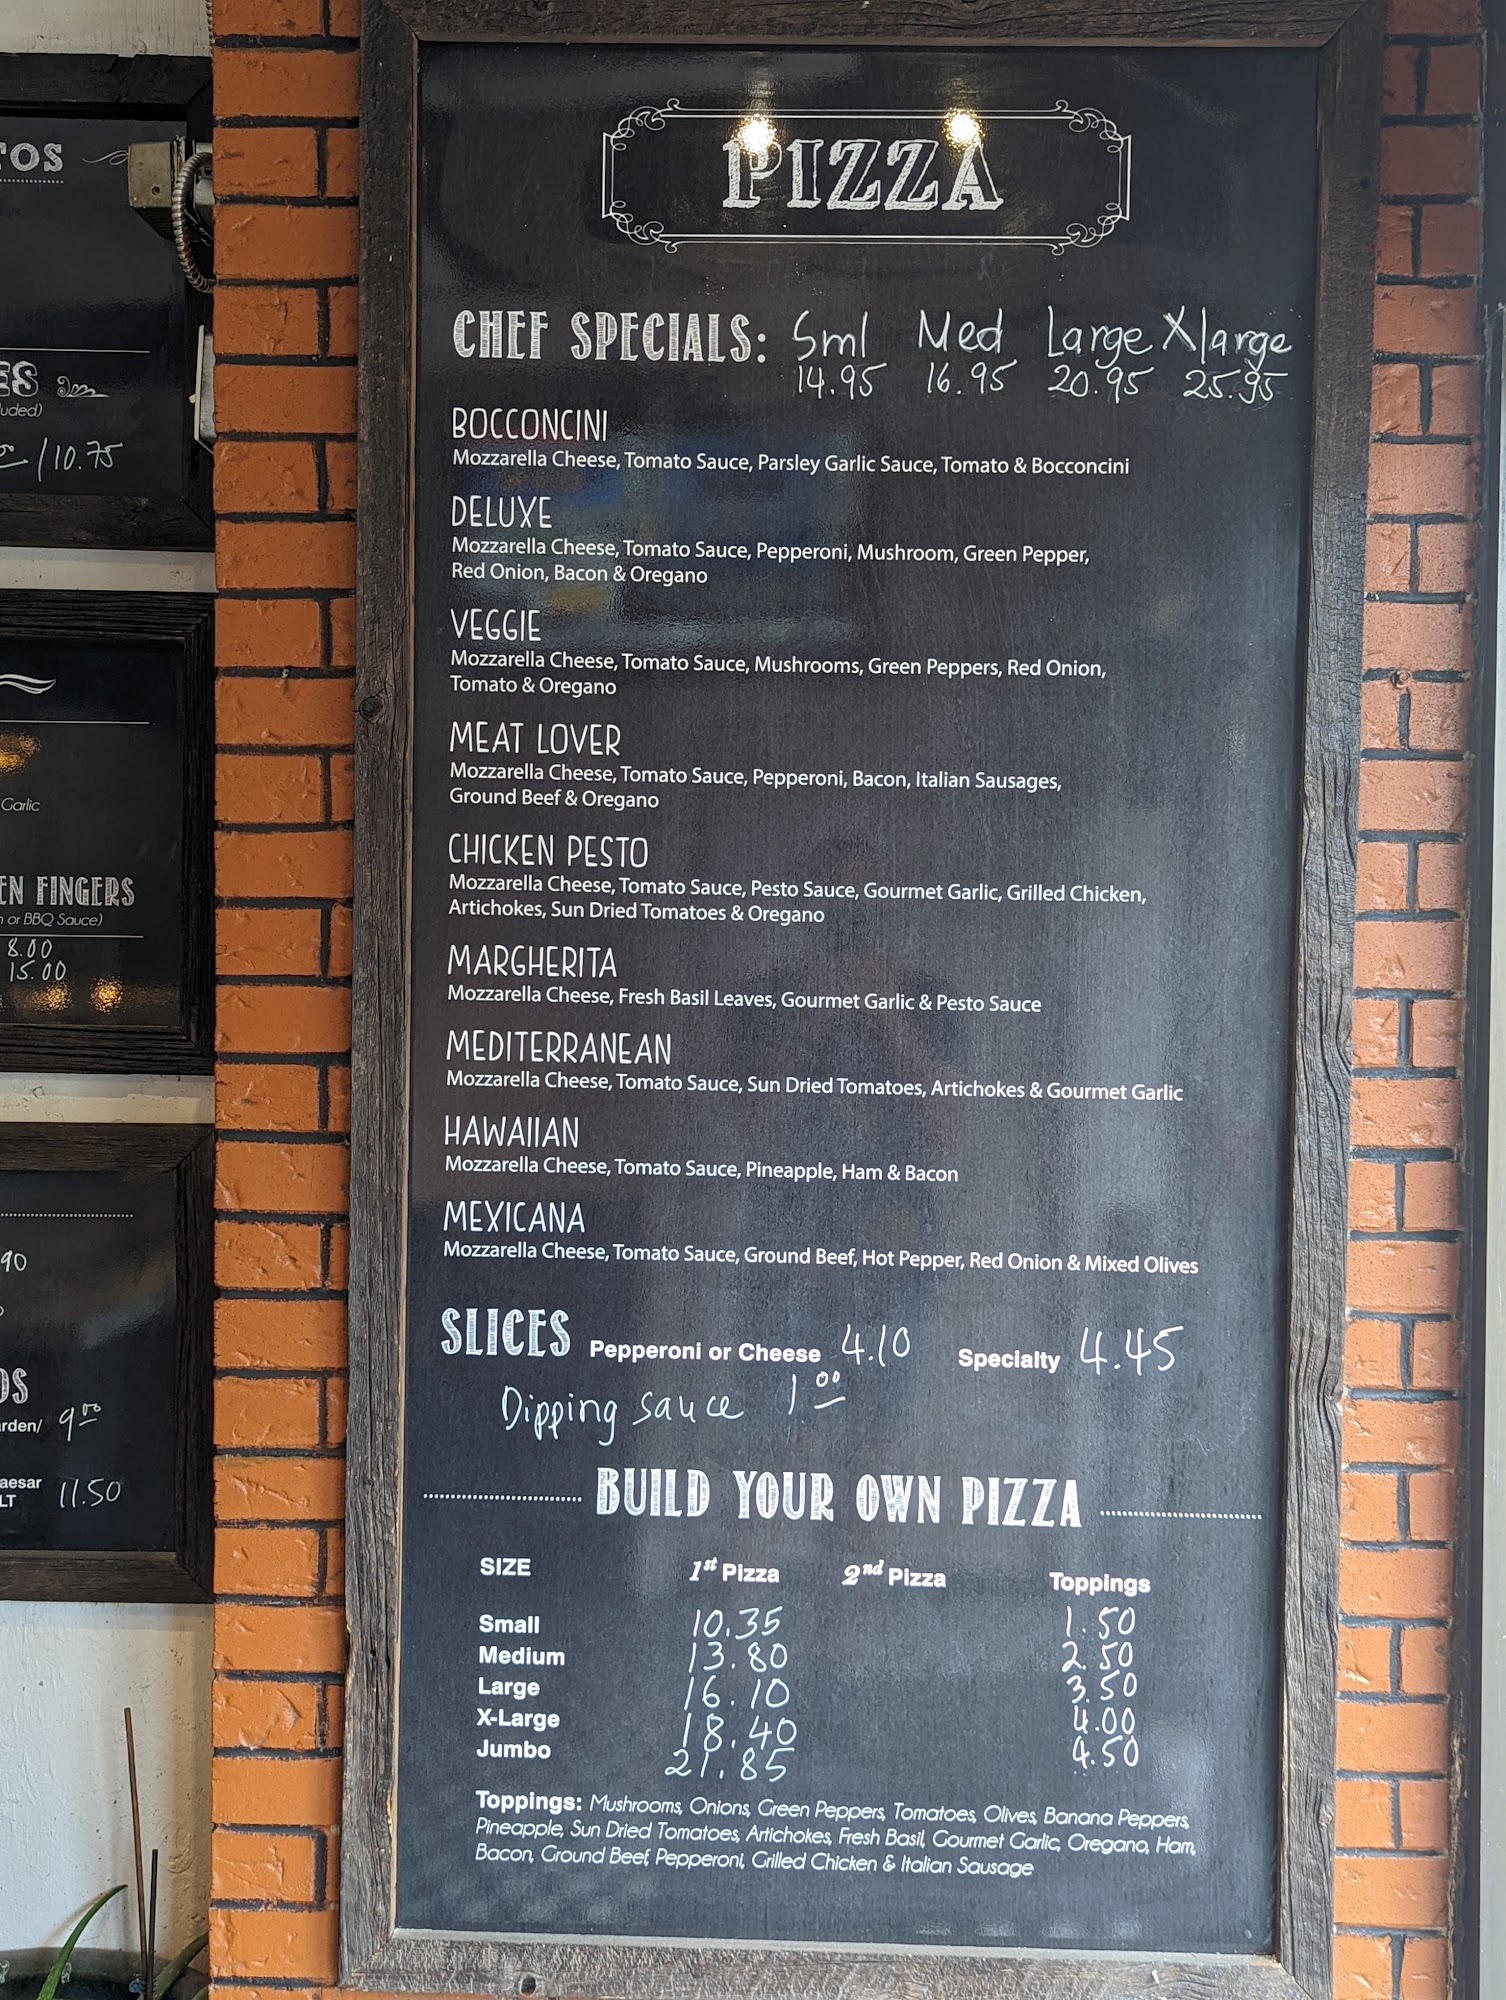 TOS
ES
luded)
/10.75
Garlic
EN FINGERS
or BBQ Sauce)
8.00
15.00
90
OS
arden/ 9.00
aesar
LT 11.50
PIZZA
CHEF SPECIALS: Sml Med Large Xlarge
14.95 16.95 20.95 25.95
BOCCONCINI
Mozzarella Cheese, Tomato Sauce, Parsley Garlic Sauce, Tomato & Bocconcini
DELUXE
Mozzarella Cheese, Tomato Sauce, Pepperoni, Mushroom, Green Pepper,
Red Onion, Bacon & Oregano
VEGGIE
Mozzarella Cheese, Tomato Sauce, Mushrooms, Green Peppers, Red Onion,
Tomato & Oregano
MEAT LOVER
Mozzarella Cheese, Tomato Sauce, Pepperoni, Bacon, Italian Sausages,
Ground Beef & Oregano
CHICKEN PESTO
Mozzarella Cheese, Tomato Sauce, Pesto Sauce, Gourmet Garlic, Grilled Chicken,
Artichokes, Sun Dried Tomatoes & Oregano
MARGHERITA
Mozzarella Cheese, Fresh Basil Leaves, Gourmet Garlic & Pesto Sauce
MEDITERRANEAN
Mozzarella Cheese, Tomato Sauce, Sun Dried Tomatoes, Artichokes & Gourmet Garlic
HAWAIIAN
Mozzarella Cheese, Tomato Sauce, Pineapple, Ham & Bacon
MEXICANA
Mozzarella Cheese, Tomato Sauce, Ground Beef, Hot Pepper, Red Onion & Mixed Olives
SLICES Pepperoni or Cheese 4.10 Specialty 4.45
Dipping sauce 1.00
BUILD YOUR OWN PIZZA
SIZE 1st Pizza 2nd Pizza Toppings
Small 10.35 1.50
Medium 13.80 2.50
Large 16.10 3.50
X-Large 18.40 4.00
Jumbo 21.85 4.50
Toppings: Mushrooms, Onions, Green Peppers, Tomatoes, Olives, Banana Peppers,
Pineapple, Sun Dried Tomatoes, Artichokes, Fresh Basil, Gourmet Garlic, Oregano, Ham,
Bacon, Ground Beef, Pepperoni, Grilled Chicken & Italian Sausage